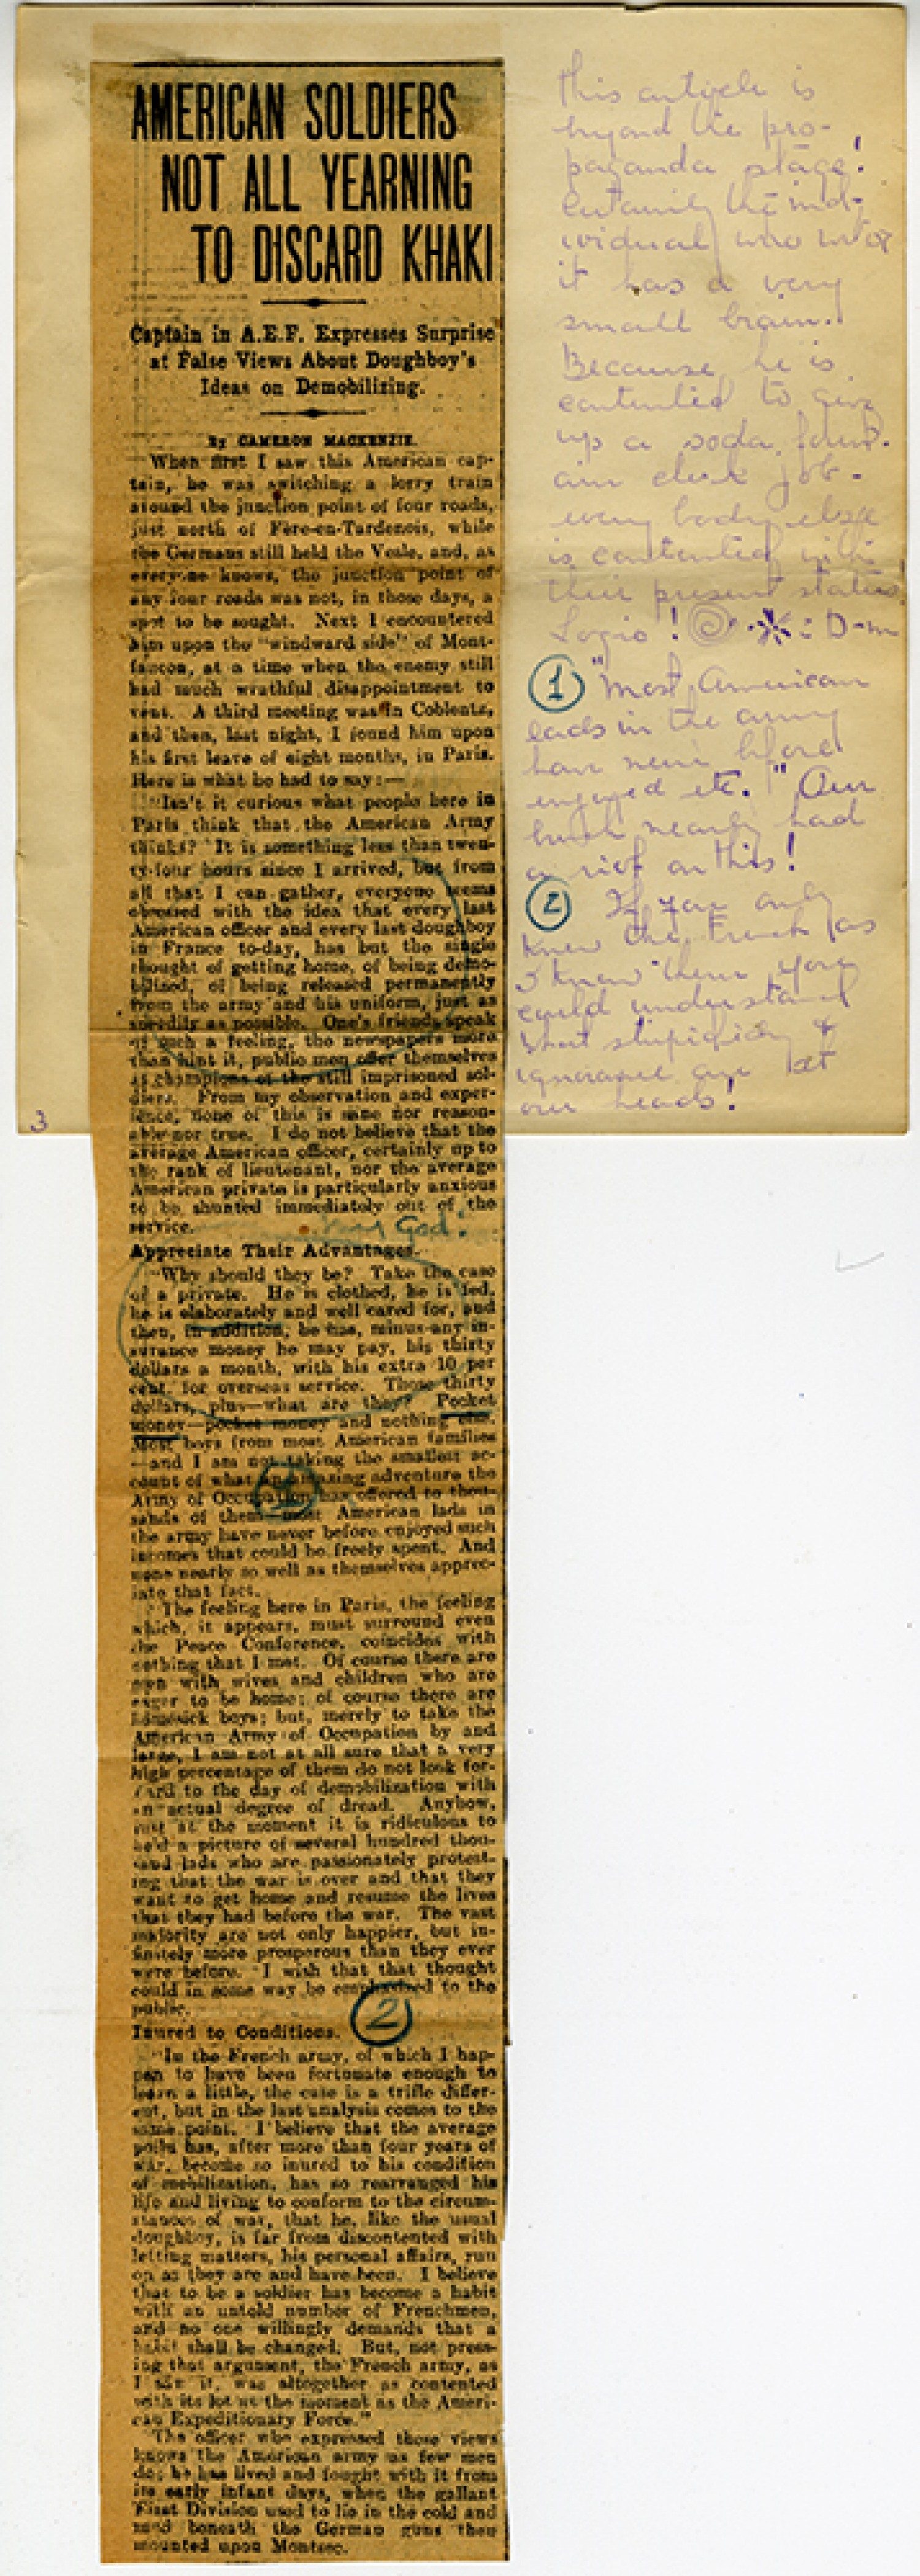 AMERICAN SOLDIERS
NOT ALL YEARNING
TO DISCARD KHAKI
Captain in A.E.F. Expresses Surprise
at False Views About Doughboy's
Ideas on Demobilizing.
By CAMERON MACKENZIE.
"When first I saw this American cap-
tain, he was switching a lorry train
around the junction point of four roads,
just north of Fère-en-Tardenois, while
the Germans still held the Vesle, and, as
everyone knows, the junction point of
any four roads was not, in those days, a
spot to be sought. Next I encountered
him upon the "windward side" of Mont-
faucon, at a time when the enemy still
had much wrathful disappointment to
vent. A third meeting was in Coblentz,
and then, last night, I found him upon
his first leave of eight months, in Paris.
Here is what he had to say:—
"Isn't it curious what people here in
Paris think that the American Army
thinks? It is something less than twen-
ty-four hours since I arrived, but from
all that I can gather, everyone seems
obsessed with the idea that every last
American officer and every last doughboy
in France to-day, has but the single
thought of getting home, of being demo-
bilized, of being released permanently
from the army and his uniform, just as
speedily as possible. One's friends speak
of such a feeling, the newspapers more
than hint it, public men offer themselves
as champions of the still imprisoned sol-
diers. From my observation and exper-
ience, none of this is sane nor reason-
able nor true. I do not believe that the
average American officer, certainly up to
the rank of lieutenant, nor the average
American private is particularly anxious
to be shunted immediately out of the
service.
My God!
Appreciate Their Advantages.
"Why should they be? Take the case
of a private. He is clothed, he is fed,
he is elaborately and well cared for, and
then, in addition, he has, minus any in-
surance money he may pay, his thirty
dollars a month, with his extra 10 per
cent. for overseas service. Those thirty
dollars, plus—what are they? Pocket
money—pocket money and nothing else.
Most boys from most American families
—and I am not taking the smallest ac-
count of what an amazing adventure the
Army of Occupation has offered to thou-
sands of them—most American lads in
the army have never before enjoyed such
incomes that could be freely spent. And
none nearly so well as themselves apprec-
iate that fact.
1
"The feeling here in Paris, the feeling
which, it appears, must surround even
the Peace Conference, coincides with
nothing that I met. Of course there are
men with wives and children who are
eager to be home; of course there are
homesick boys; but, merely to take the
American Army of Occupation by and
large, I am not at all sure that a very
high percentage of them do not look for-
ward to the day of demobilization with
an actual degree of dread. Anyhow,
just at the moment it is ridiculous to
hold a picture of several hundred thou-
sand lads who are passionately protest-
ing that the war is over and that they
want to get home and resume the lives
that they had before the war. The vast
majority are not only happier, but in-
finitely more prosperous than they ever
were before. I wish that that thought
could in some way be emphasized to the
public.
2
Inured to Conditions.
"In the French army, of which I hap-
pen to have been fortunate enough to
learn a little, the case is a trifle differ-
ent, but in the last analysis comes to the
same point. I believe that the average
poilu has, after more than four years of
war, become so inured to his condition
of mobilization, has so rearranged his
life and living to conform to the circum-
stances of war, that he, like the usual
doughboy, is far from discontented with
letting matters, his personal affairs, run
on as they are and have been. I believe
that to be a soldier has become a habit
with an untold number of Frenchmen,
and no one willingly demands that a
habit shall be changed. But, not press-
ing that argument, the French army, as
I saw it, was altogether as contented
with its lot at the moment as the Ameri-
can Expeditionary Force."
The officer who expressed those views
knows the American army as few men
do; he has lived and fought with it from
its early infant days, when the gallant
First Division used to lie in the cold and
mud beneath the German guns then
mounted upon Montsec.
3
This article is
beyond the pro-
paganda stage!
Certainly the ind-
ividual who wrote
it has a very
small brain!
Because he is
contented to give
up a soda fount-
ain clerk job -
every body else
is contented with
their present status!
Logic! : D-m
1 "Most American
lads in the army
have never before
enjoyed etc." Our
bunch nearly had
a riot on this!
2 If you only
knew the French as
I know them you
could understand
what stupidity &
ignorance are
our heads!